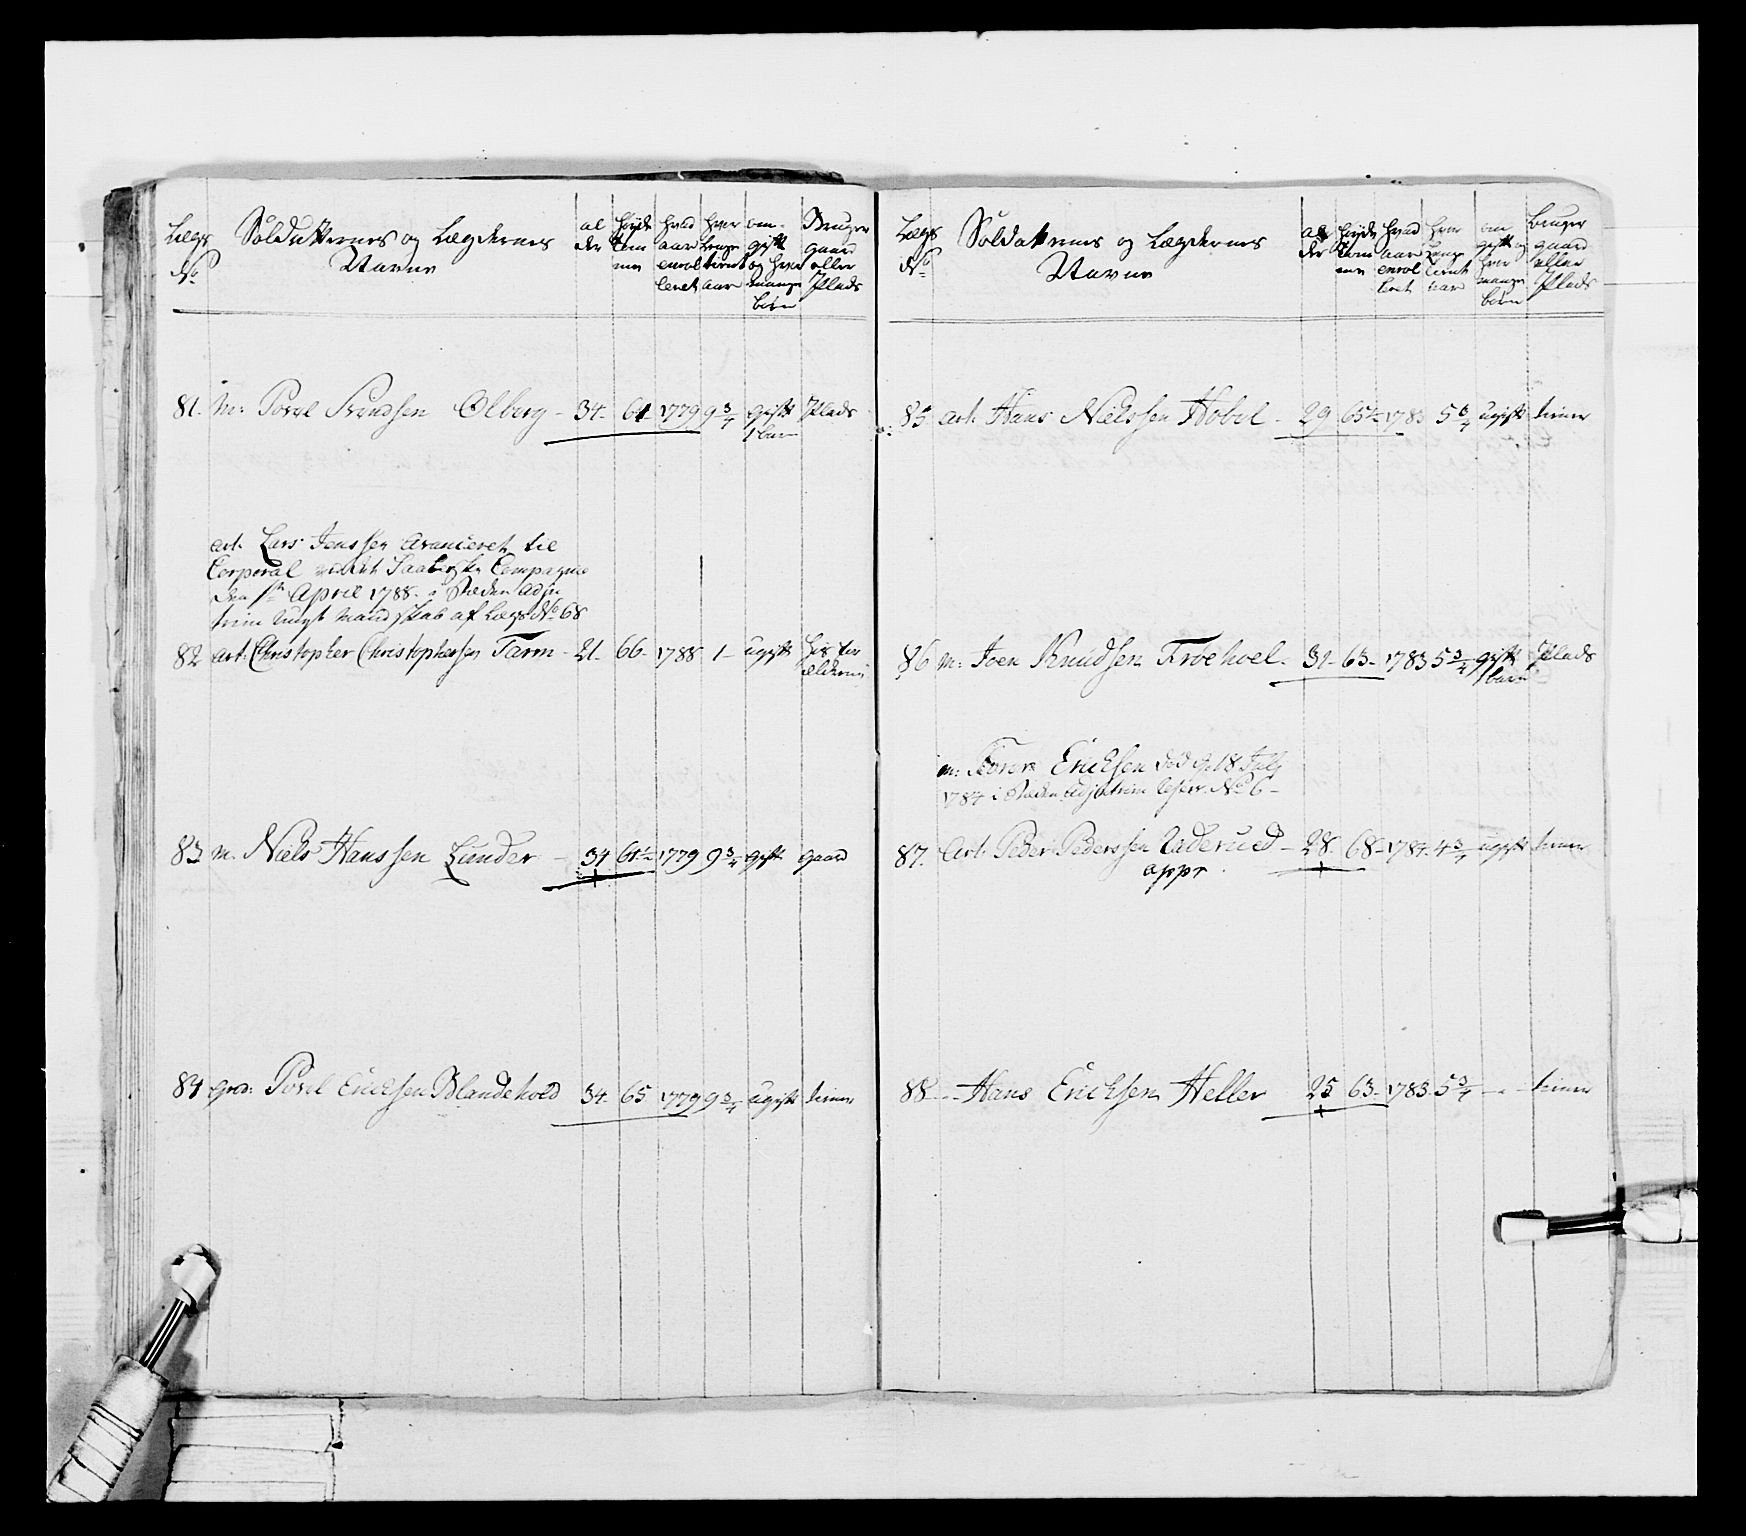 Lægs No
Soldatternes og Lægdernes Navne
al der
Høyde Tom mer
hvad aar enrol leret
hvor længe tient aar
om gift og hvor mange børn
Bruger gaard eller Plads
81. m: Povel Svendsen Olberg - 34. 61 1779 9 3/4 gift 1 barn Plads
art. Lars Jenssen avanceret til
Corporal Compagnie
den 1ste April 1788. i Steden adju
timeligt Mandskab af Lægs No 68
82 art. Christopher Christophersen Tarm - 21. 66. 1788 1 - ugift
83 m. Niels Hanssen Lunder - 34 61 1/2 1779 9 3/4 gift gaard
84 gred: Povel Erichsen Blandehoed 34. 65 1779 9 3/4 ugift tiener
Lægs No
Soldatternes og Lægdernes Navne
al der
Høyde Tom mer
hvad aar enrol leret
hvor længe tient aar
om gift og hvor mange børn
bruger gaard eller Plads
85 art. Hans Nielssen Hobel - 29 65 1/2 1783 5 3/4 ugift tiener
86 m: Joen Knudsen Froehoel - 31. 63. 1783 5 3/4 gift 1 barn Plads
m: Erichsen død d. 18 July
1784 i Steden No 6 -
87. Art. Peder Pederssen Raderued - 28. 68 - 1784. 4 3/4 ugift tiener
appr
88 - - Hans Erichsen Heller 25 63 - 1783. 5 3/4 - " - tiener